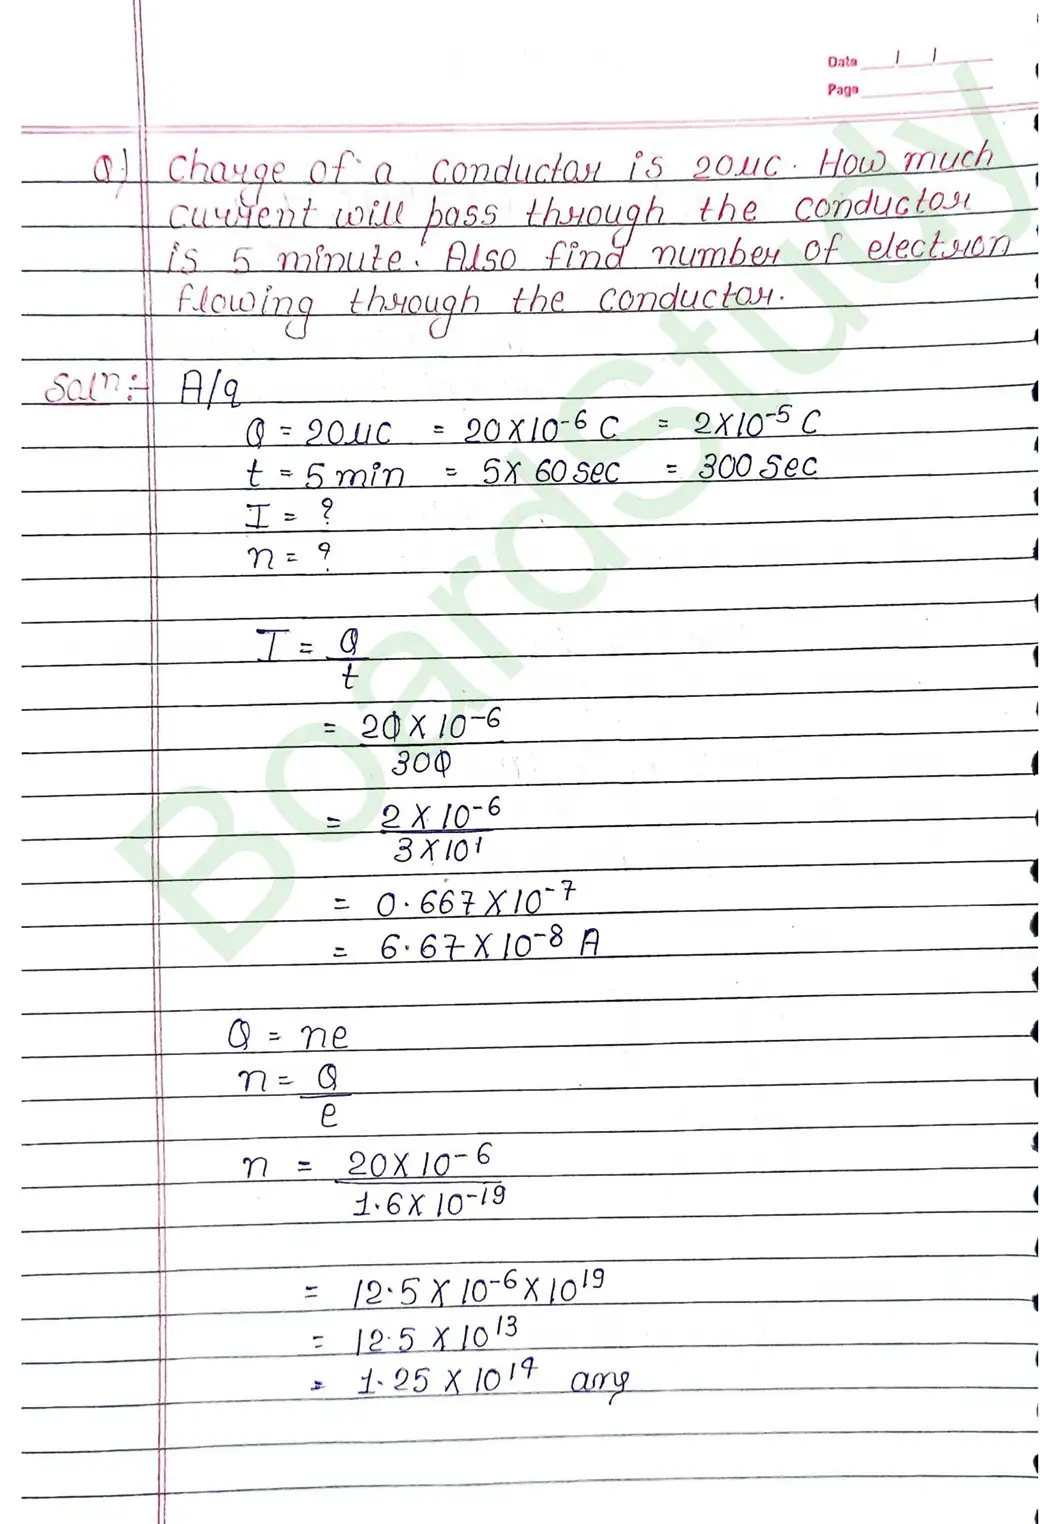 Date / /
Page
Q) Charge of a conductor is 20μC. How much
current will pass through the conductor
is 5 minute. Also find number of electron
flowing through the conductor.
Soln:- A/q
Q = 20μC = 20X10-6 C = 2X10-5 C
t = 5 min = 5X 60 sec = 300 Sec
I = ?
n = ?
I = Q
t
= 20 X 10-6
300
= 2 X 10-6
3 X 10¹
= 0.667 X 10-7
= 6.67 X 10-8 A
Q = ne
n = Q
e
n = 20X 10-6
1.6 X 10-19
= 12.5 X 10-6 X 10¹⁹
= 12.5 X 10¹³
= 1.25 X 10¹⁴ ans
BoardStudy